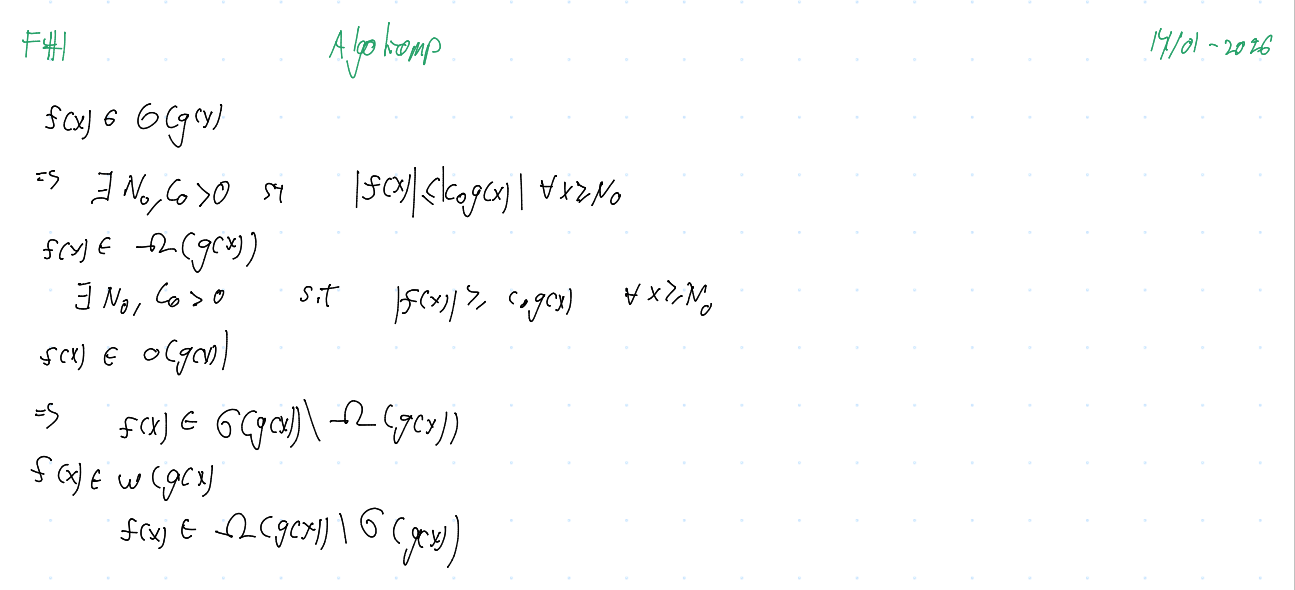 F#1 Algokomp 14/01-2026
f(x) ∈ O(g(x))
=> ∃ N₀, C₀ > 0 st |f(x)| ≤ |c₀g(x)| ∀ x ≥ N₀
f(x) ∈ Ω(g(x))
∃ N₀, C₀ > 0 s.t |f(x)| ≥ c₀g(x) ∀ x ≥ N₀
f(x) ∈ o(g(x))
=> f(x) ∈ O(g(x)) \ Ω(g(x))
f(x) ∈ ω(g(x)
f(x) ∈ Ω(g(x)) \ O(g(x))